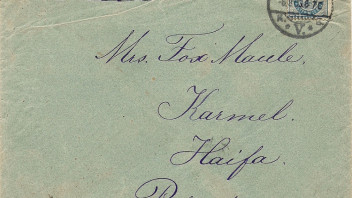 Mrs. Fox Maule,
Karmel.
Haifa.